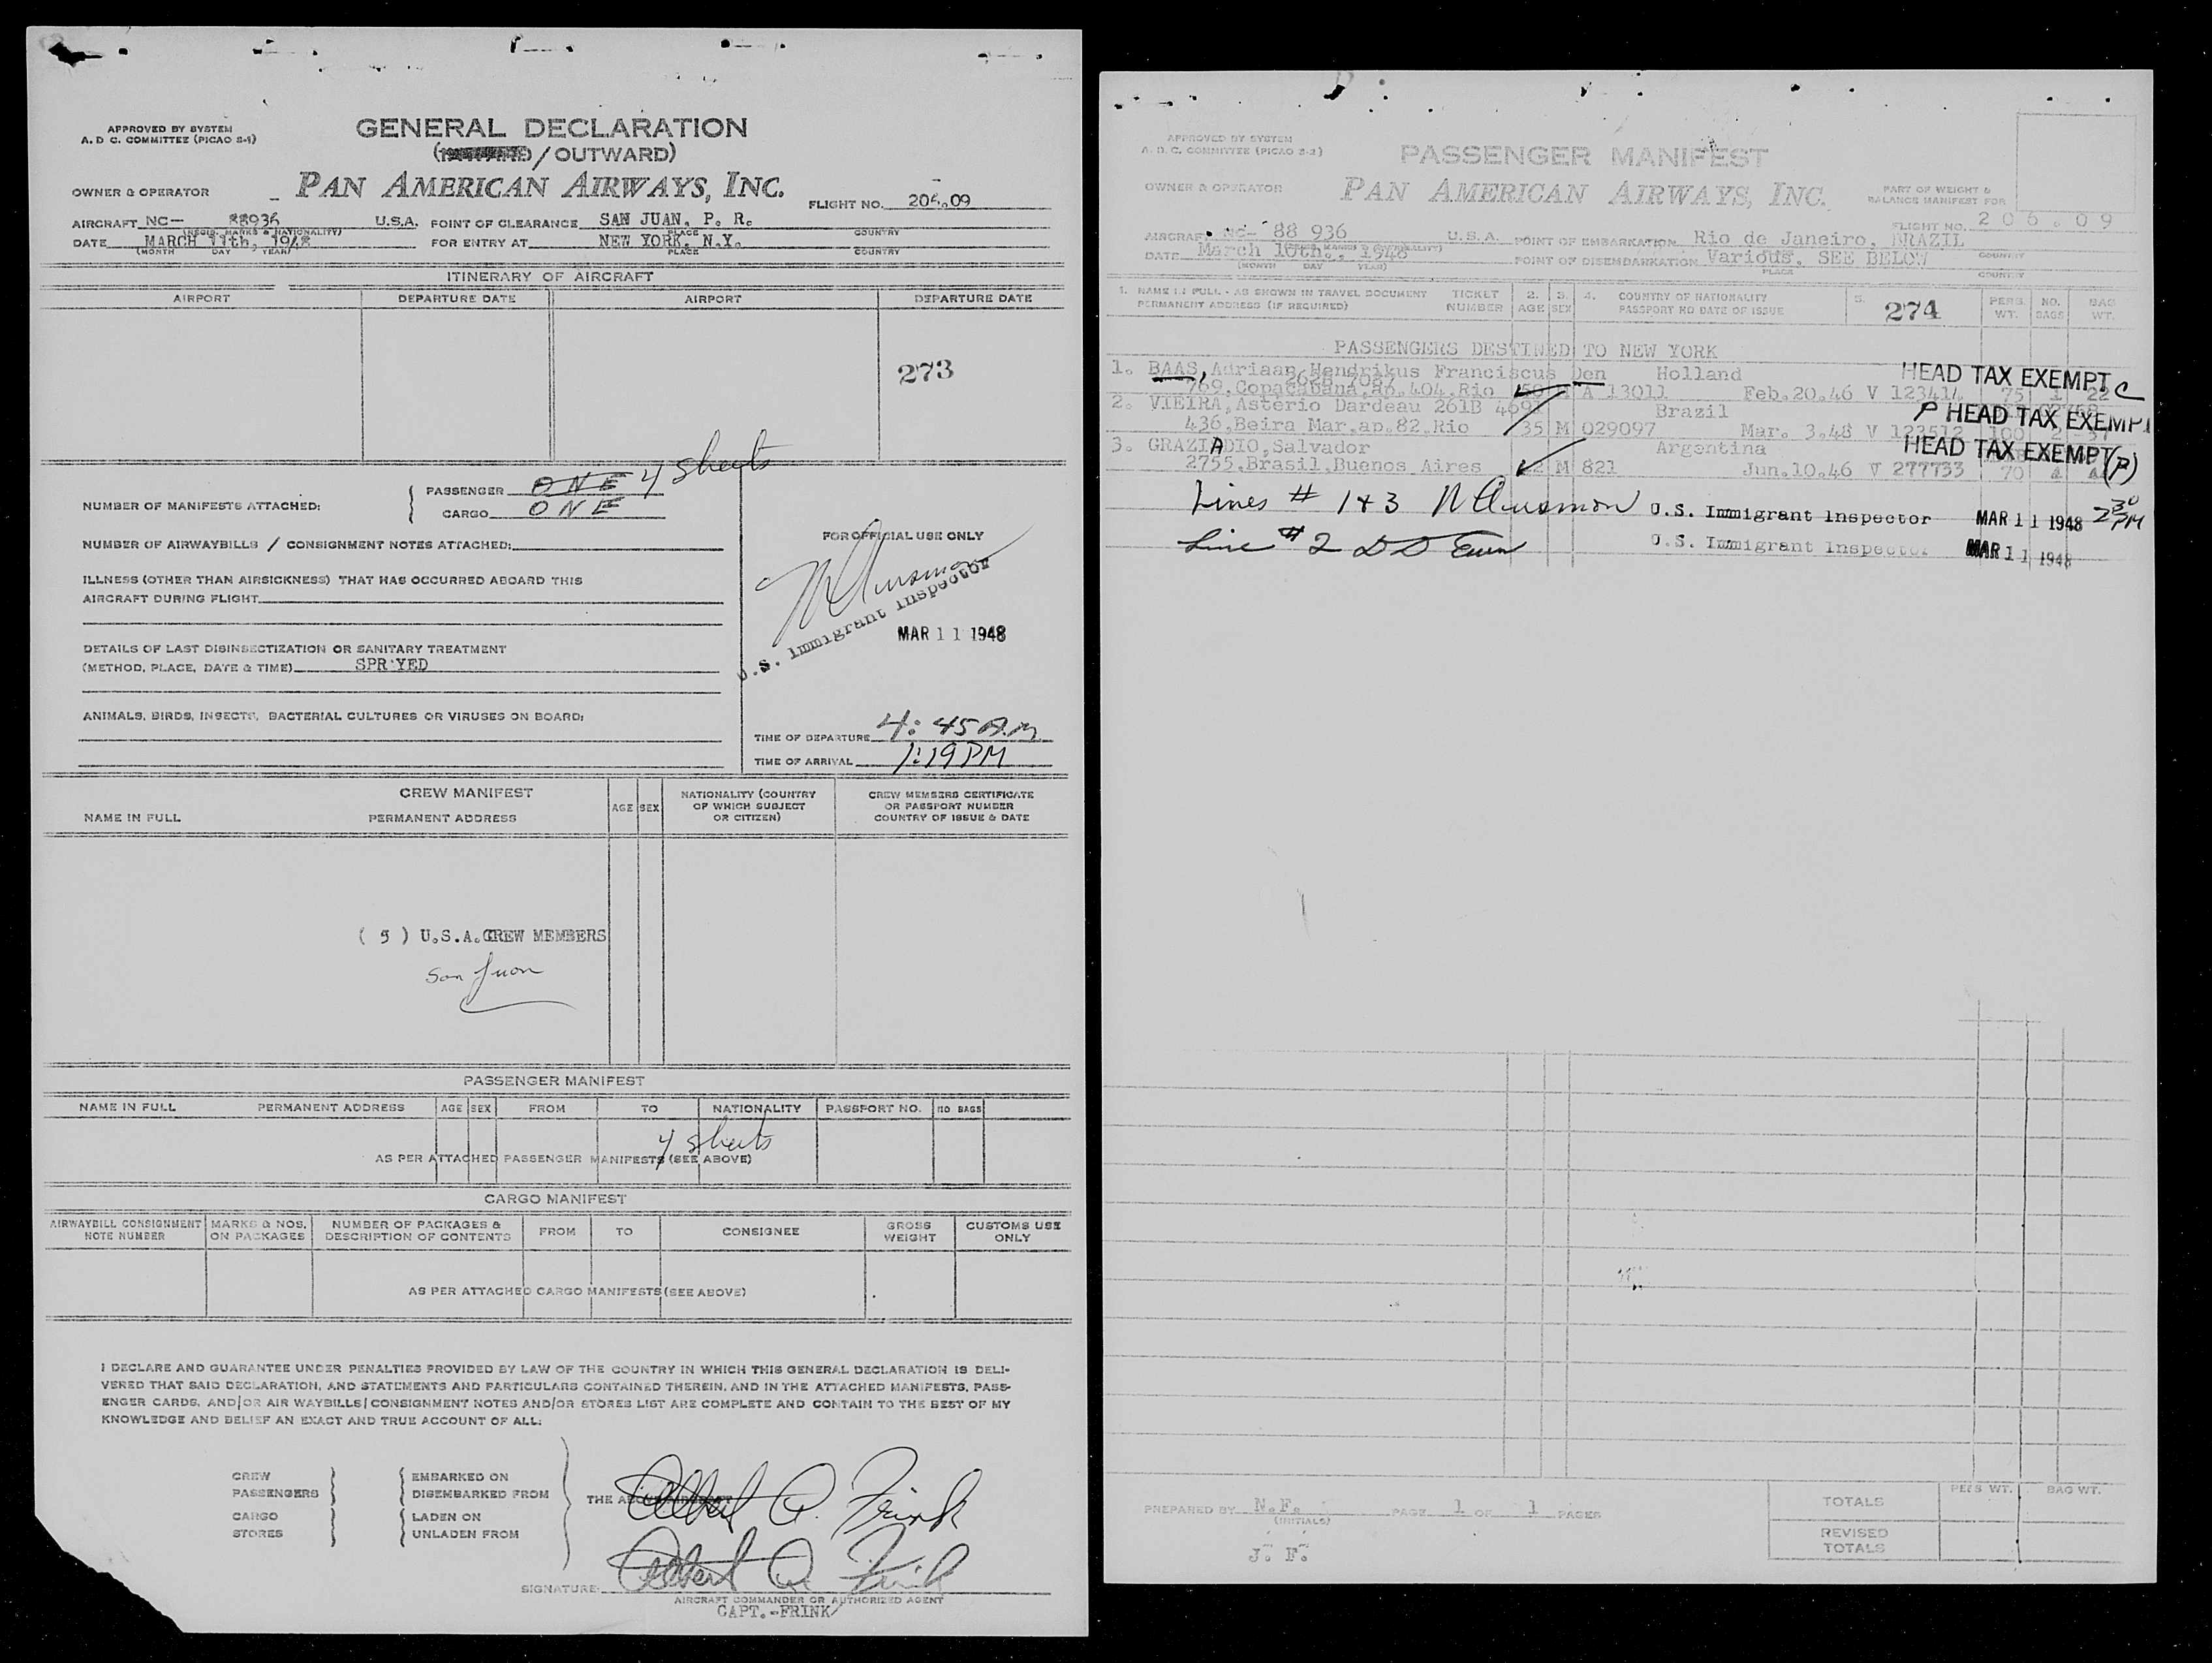 APPROVED BY SYSTEM
A. D C. COMMITTEE (PICAO S-1)
GENERAL DECLARATION
/ OUTWARD)
OWNER & OPERATOR
PAN AMERICAN AIRWAYS, INC.
FLIGHT NO. 206.09
AIRCRAFT NC- 88936 U.S.A. POINT OF CLEARANCE SAN JUAN, P. R.
(REGIS. MARKS & NATIONALITY) PLACE COUNTRY
DATE MARCH 11th, 1948 FOR ENTRY AT NEW YORK, N.Y.
(MONTH DAY YEAR) PLACE COUNTRY
ITINERARY OF AIRCRAFT
AIRPORT DEPARTURE DATE AIRPORT DEPARTURE DATE
273
NUMBER OF MANIFESTS ATTACHED:
PASSENGER ONE 4 sheets
CARGO ONE
NUMBER OF AIRWAYBILLS / CONSIGNMENT NOTES ATTACHED:
FOR OFFICIAL USE ONLY
ILLNESS (OTHER THAN AIRSICKNESS) THAT HAS OCCURRED ABOARD THIS
AIRCRAFT DURING FLIGHT
U.S. Immigrant Inspector
MAR 11 1948
DETAILS OF LAST DISINSECTIZATION OR SANITARY TREATMENT
(METHOD, PLACE, DATE & TIME) SPR'YED
ANIMALS, BIRDS, INSECTS, BACTERIAL CULTURES OR VIRUSES ON BOARD:
TIME OF DEPARTURE 4:45 A.M
TIME OF ARRIVAL 1:19 PM
CREW MANIFEST
NAME IN FULL PERMANENT ADDRESS AGE SEX
NATIONALITY (COUNTRY
OF WHICH SUBJECT
OR CITIZEN)
CREW MEMBERS CERTIFICATE
OR PASSPORT NUMBER
COUNTRY OF ISSUE & DATE
( 5 ) U.S.A. CREW MEMBERS
San Juan
PASSENGER MANIFEST
NAME IN FULL PERMANENT ADDRESS AGE SEX FROM TO NATIONALITY PASSPORT NO. NO BAGS
4 sheets
AS PER ATTACHED PASSENGER MANIFESTS (SEE ABOVE)
CARGO MANIFEST
AIRWAYBILL CONSIGNMENT
NOTE NUMBER
MARKS & NOS.
ON PACKAGES
NUMBER OF PACKAGES &
DESCRIPTION OF CONTENTS
FROM TO CONSIGNEE
GROSS
WEIGHT
CUSTOMS USE
ONLY
AS PER ATTACHED CARGO MANIFESTS (SEE ABOVE)
I DECLARE AND GUARANTEE UNDER PENALTIES PROVIDED BY LAW OF THE COUNTRY IN WHICH THIS GENERAL DECLARATION IS DELI-
VERED THAT SAID DECLARATION, AND STATEMENTS AND PARTICULARS CONTAINED THEREIN, AND IN THE ATTACHED MANIFESTS, PASS-
ENGER CARDS, AND/OR AIR WAYBILLS/CONSIGNMENT NOTES AND/OR STORES LIST ARE COMPLETE AND CONTAIN TO THE BEST OF MY
KNOWLEDGE AND BELIEF AN EXACT AND TRUE ACCOUNT OF ALL:
CREW EMBARKED ON
PASSENGERS DISEMBARKED FROM
CARGO LADEN ON
STORES UNLADEN FROM
THE
Albert A. Frink
Albert A. Frink
SIGNATURE:
AIRCRAFT COMMANDER OR AUTHORIZED AGENT
CAPT. -FRINK
APPROVED BY SYSTEM
A. D. C. COMMITTEE (PICAO S-2)
PASSENGER MANIFEST
OWNER & OPERATOR
PAN AMERICAN AIRWAYS, INC.
PART OF WEIGHT &
BALANCE MANIFEST FOR
FLIGHT NO. 206.09
AIRCRAFT NC- 88 936 U.S.A. POINT OF EMBARKATION Rio de Janeiro, BRAZIL
COUNTRY
DATE March 10th., 1948 POINT OF DISEMBARKATION Various, SEE BELOW
(MONTH DAY YEAR) PLACE COUNTRY
1. NAME IN FULL - AS SHOWN IN TRAVEL DOCUMENT
PERMANENT ADDRESS (IF REQUIRED)
TICKET
NUMBER
2. AGE 3. SEX
4. COUNTRY OF NATIONALITY
PASSPORT NO DATE OF ISSUE
5. 274
PERS. WT. NO. BAGS BAG WT.
PASSENGERS DESTINED TO NEW YORK
1. BAAS, Adriaan Hendrikus Franciscus Den Holland HEAD TAX EXEMPT C
769, Copacabana, ap. 404, Rio 50 M A 13011 Feb.20.46 V 123414 75 1 22
2. VIEIRA, Asterio Dardeau 261B Brazil P HEAD TAX EXEMPT
436, Beira Mar, ap. 82, Rio 35 M 029097 Mar. 3.48 V 100
3. GRAZIADIO, Salvador Argentina HEAD TAX EXEMPT (P)
2755, Brasil, Buenos Aires M 821 Jun.10.46 V 277733 70
Lines # 1 & 3 U.S. Immigrant Inspector MAR 11 1948 2 30 PM
Line # 2 U.S. Immigrant Inspector MAR 11 1948
PREPARED BY N.F. PAGE 1 OF 1 PAGES
(INITIALS)
J. F.
PERS WT. BAG WT.
TOTALS
REVISED
TOTALS